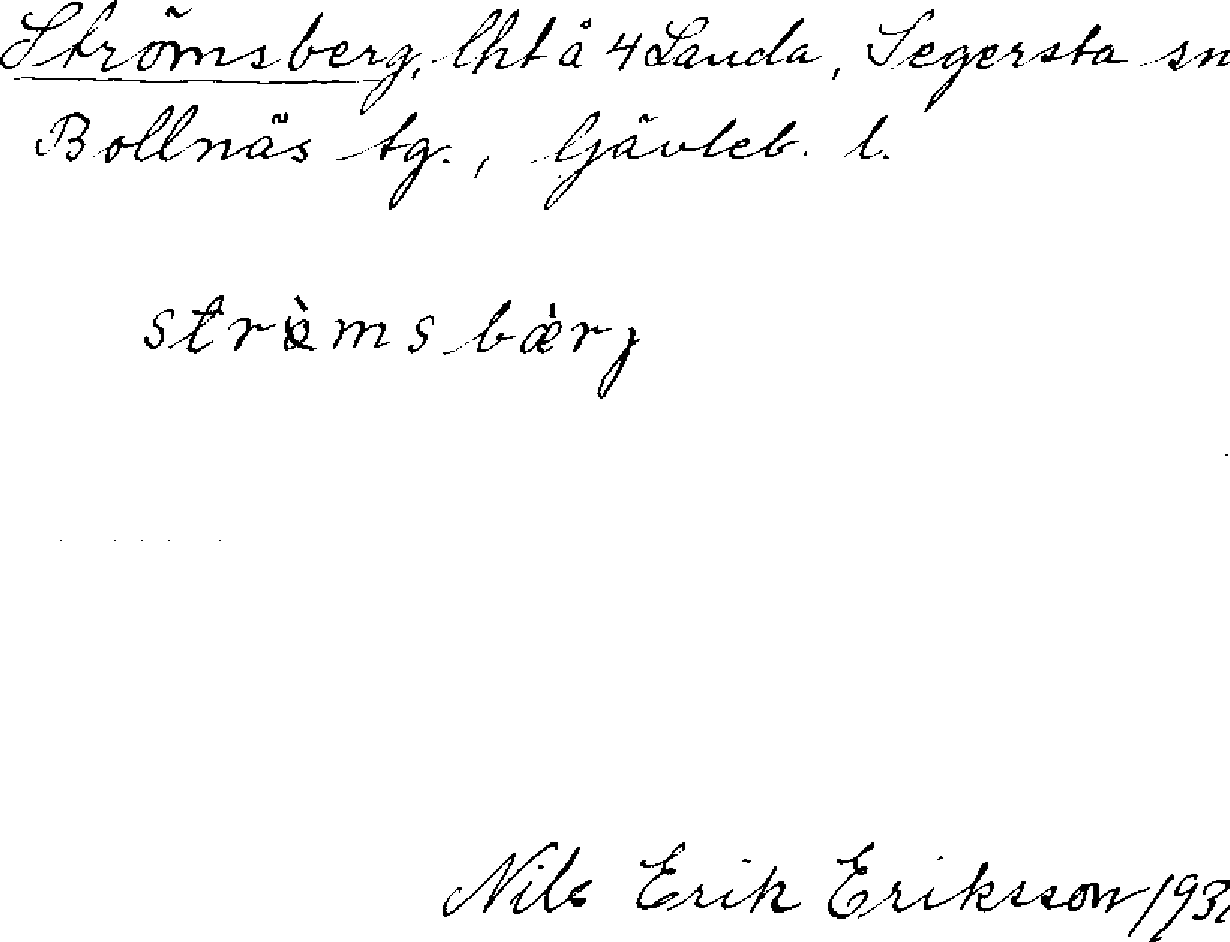 Strömsberg, lht å 4 Landa, Segersta sn
Bollnäs tg., Gävleb. l.
strὰmsbæ̀rj
Nils Erik Eriksson